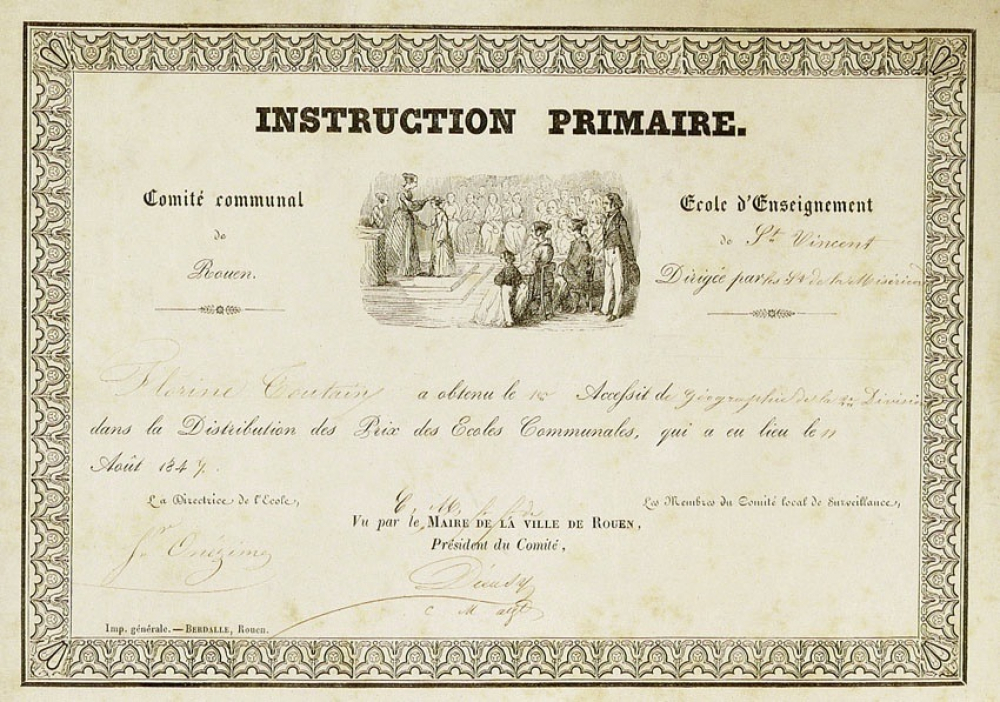 INSTRUCTION PRIMAIRE.
Comité communal
de
Rouen.
Ecole d'Enseignement
de St Vincent
Dirigée par les Srs de la Miséricorde
Florine Coutain a obtenu le 1er Accessit de géographie de la 2me Division
dans la Distribution des Prix des Ecoles Communales, qui a eu lieu le 11
Août 1847.
La Directrice de l'Ecole,
Sr Onézime
Vu par le MAIRE DE LA VILLE DE ROUEN,
Président du Comité,
Les Membres du Comité local de Surveillance,
Imp. générale. — BERDALLE, Rouen.